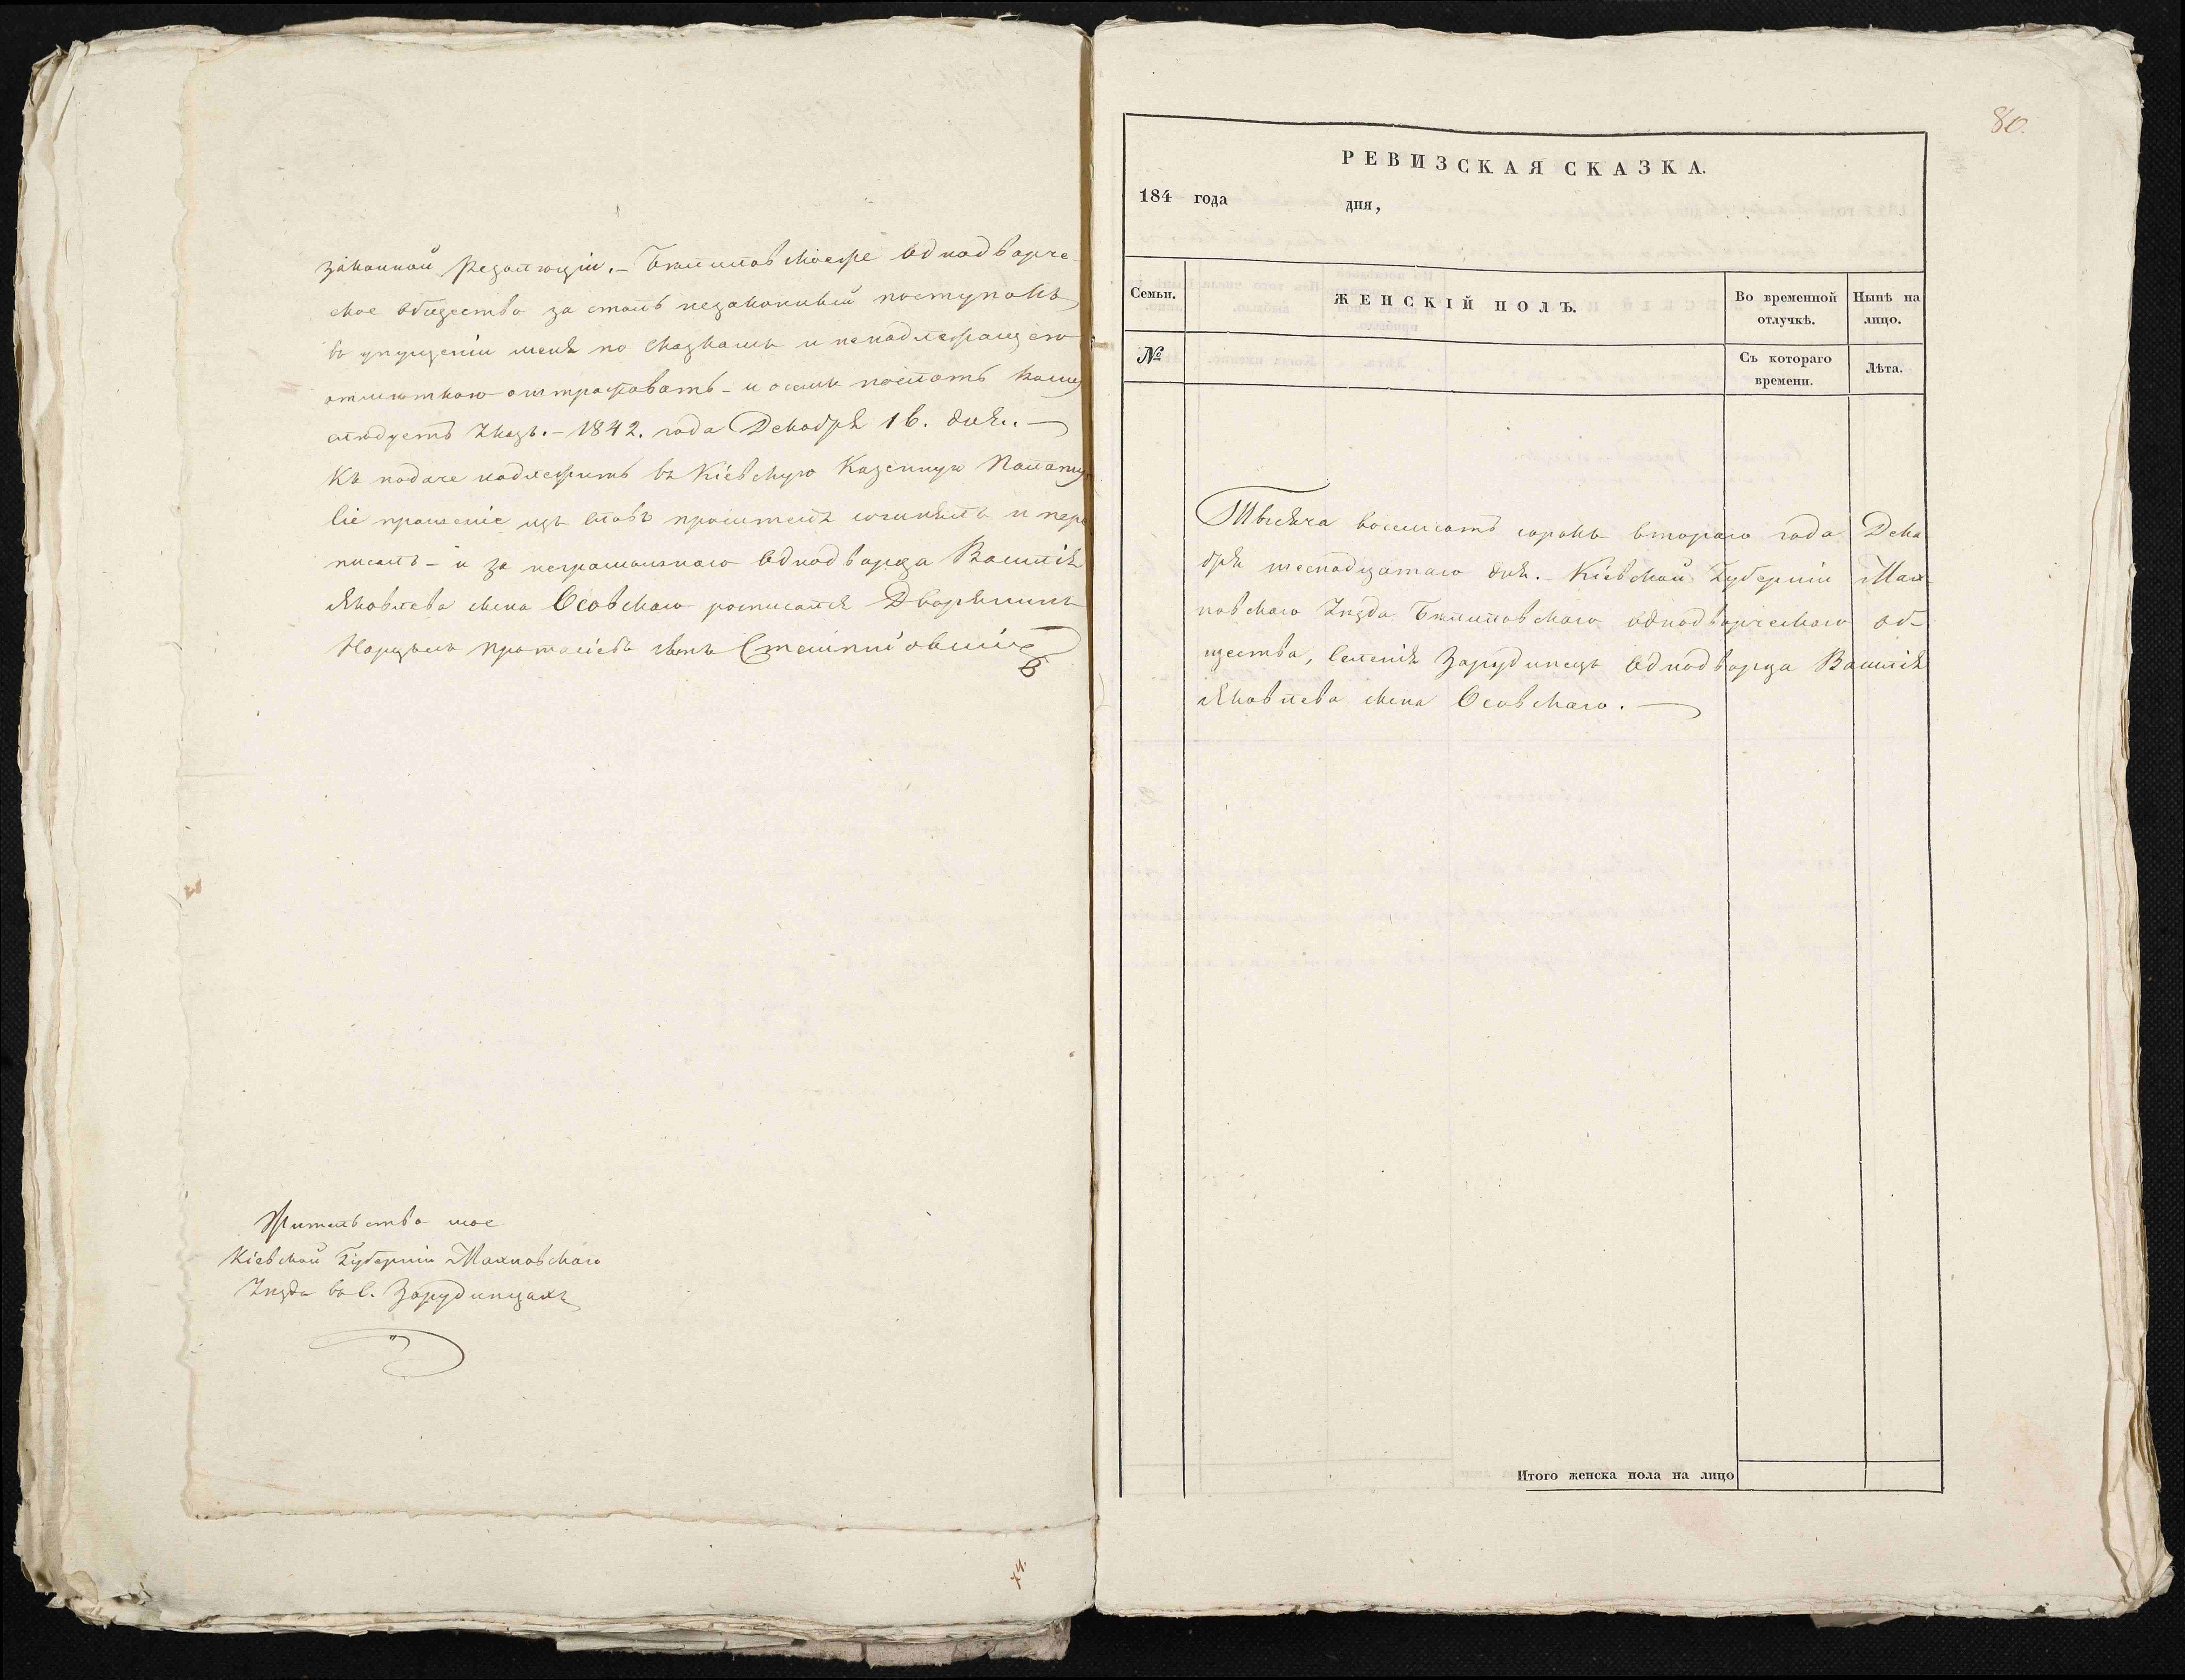 законной Резолюціи. – Бѣлиловскоеже Однодворче-
ское Общество за столь незаконный поступокъ
въ упущеніи меня по сказкамъ и неподлежащею
отмѣткою оштрафовать – и о семъ послать кому
слѣдуетъ Указъ. – 1842. года Декабря 16. дня. –
Къ подаче надлежитъ въ Кіевскую Казенную Палату
Сіе прошеніе изъ словъ просителя сочинялъ и пере
писалъ – и за неграмотнаго Однодворца Василія
Яковлева сына Осовскаго росписался Дворянинъ
сынъ
Жительство мое
Кіевской Губерніи Махновскаго
Уѣзда въ С. Зарудинцахъ
74.
80.
РЕВИЗСКАЯ СКАЗКА.
184 года дня,
Семьи. ЖЕНСКІЙ ПОЛЪ. Во временной отлучкѣ. Нынѣ на лицо.
№ Съ котораго времени. Лѣта.
Тысяча восемсотъ сорокъ втораго года Дека
бря шеснадцатаго дня. – Кіевской Губерніи Мах-
новскаго Уѣзда Бѣлиловскаго однодворческаго об-
щества, Селенія Зарудинецъ Однодворца Василія
Яковлева сына Осовскаго. –
Итого женска пола на лицо